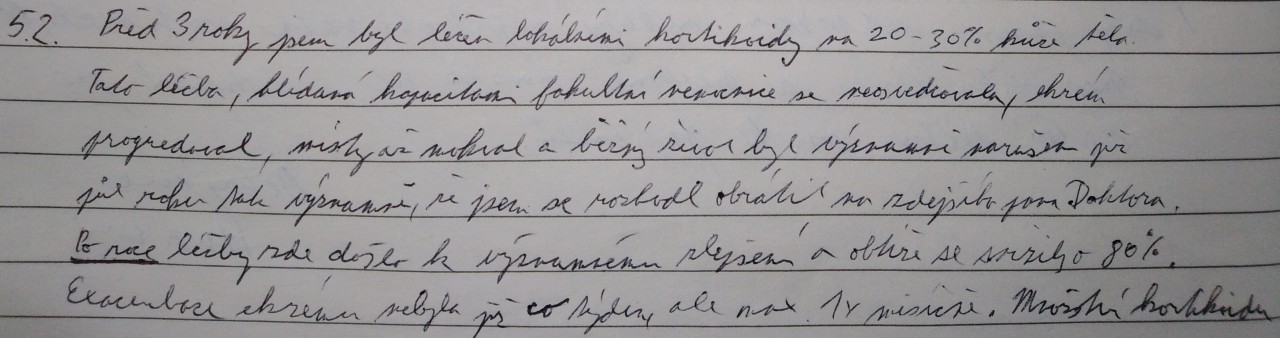 5.2. Před 3 roky jsem byl léčen lokálními kortikoidy na 20-30% kůže těla.
Tato léčba, hlídaná kapacitami fakultní nemocnice se neosvědčovala, ekzém
progredoval, místy až mokval a běžný život byl významně narušen již
půl roku tak významně, že jsem se rozhodl obrátit na zdejšího pana Doktora.
Po roce léčby zde došlo k významnému zlepšení a obtíže se snížily o 80%.
Exacerbace ekzému nebyla již co týden, ale max. 1x měsíčně. Množství kortikoidů